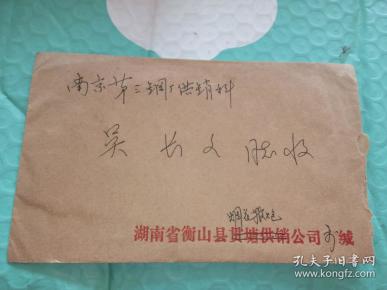 南京第三钢厂供销科
吴长文同志收
烟花鞭炮
湖南省衡山县贯塘供销公司 缄
孔夫子旧书网